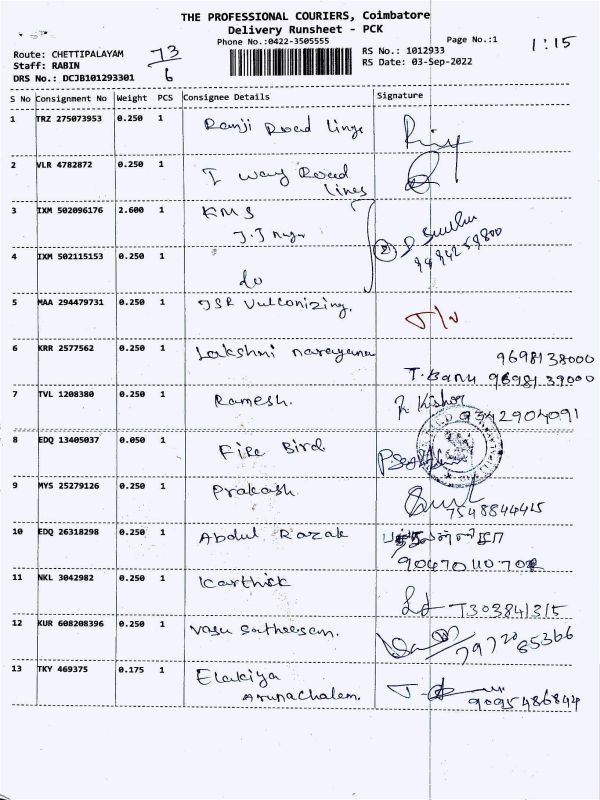 THE PROFESSIONAL COURIERS, Coimbatore
Delivery Runsheet - PCK
Phone No.:0422-3505555
Page No.:1
1:15
Route: CHETTIPALAYAM
73
6
RS No.: 1012933
Staff: RABIN
RS Date: 03-Sep-2022
DRS No.: DCJB101293301
S No Consignment No Weight PCS Consignee Details Signature
1 TRZ 275073953 0.250 1 Ranji Road lines
2 VLR 4782872 0.250 1 I way Road
lines
3 IXM 502096176 2.600 1 KMS
J.J Nagar
9894259800
4 IXM 502115153 0.250 1 do
5 MAA 294479731 0.250 1 JSR Vulconizing.
6 KRR 2577562 0.250 1 Lakshmi narayana 9698138000
T. Banu 9698139000
7 TVL 1208380 0.250 1 Ramesh. R Kishor
9342904091
8 EDQ 13405037 0.050 1 Fire Bird
9 MYS 25279126 0.250 1 Prakash.
7548844415
10 EDQ 26318298 0.250 1 Abdul Razak
11 NKL 3042982 0.250 1 Karthick
7303841315
12 KUR 608208396 0.250 1 Vasu Satheesan.
79720 85366
13 TKY 469375 0.175 1 Elakiya
Arunachalam.
9095486844